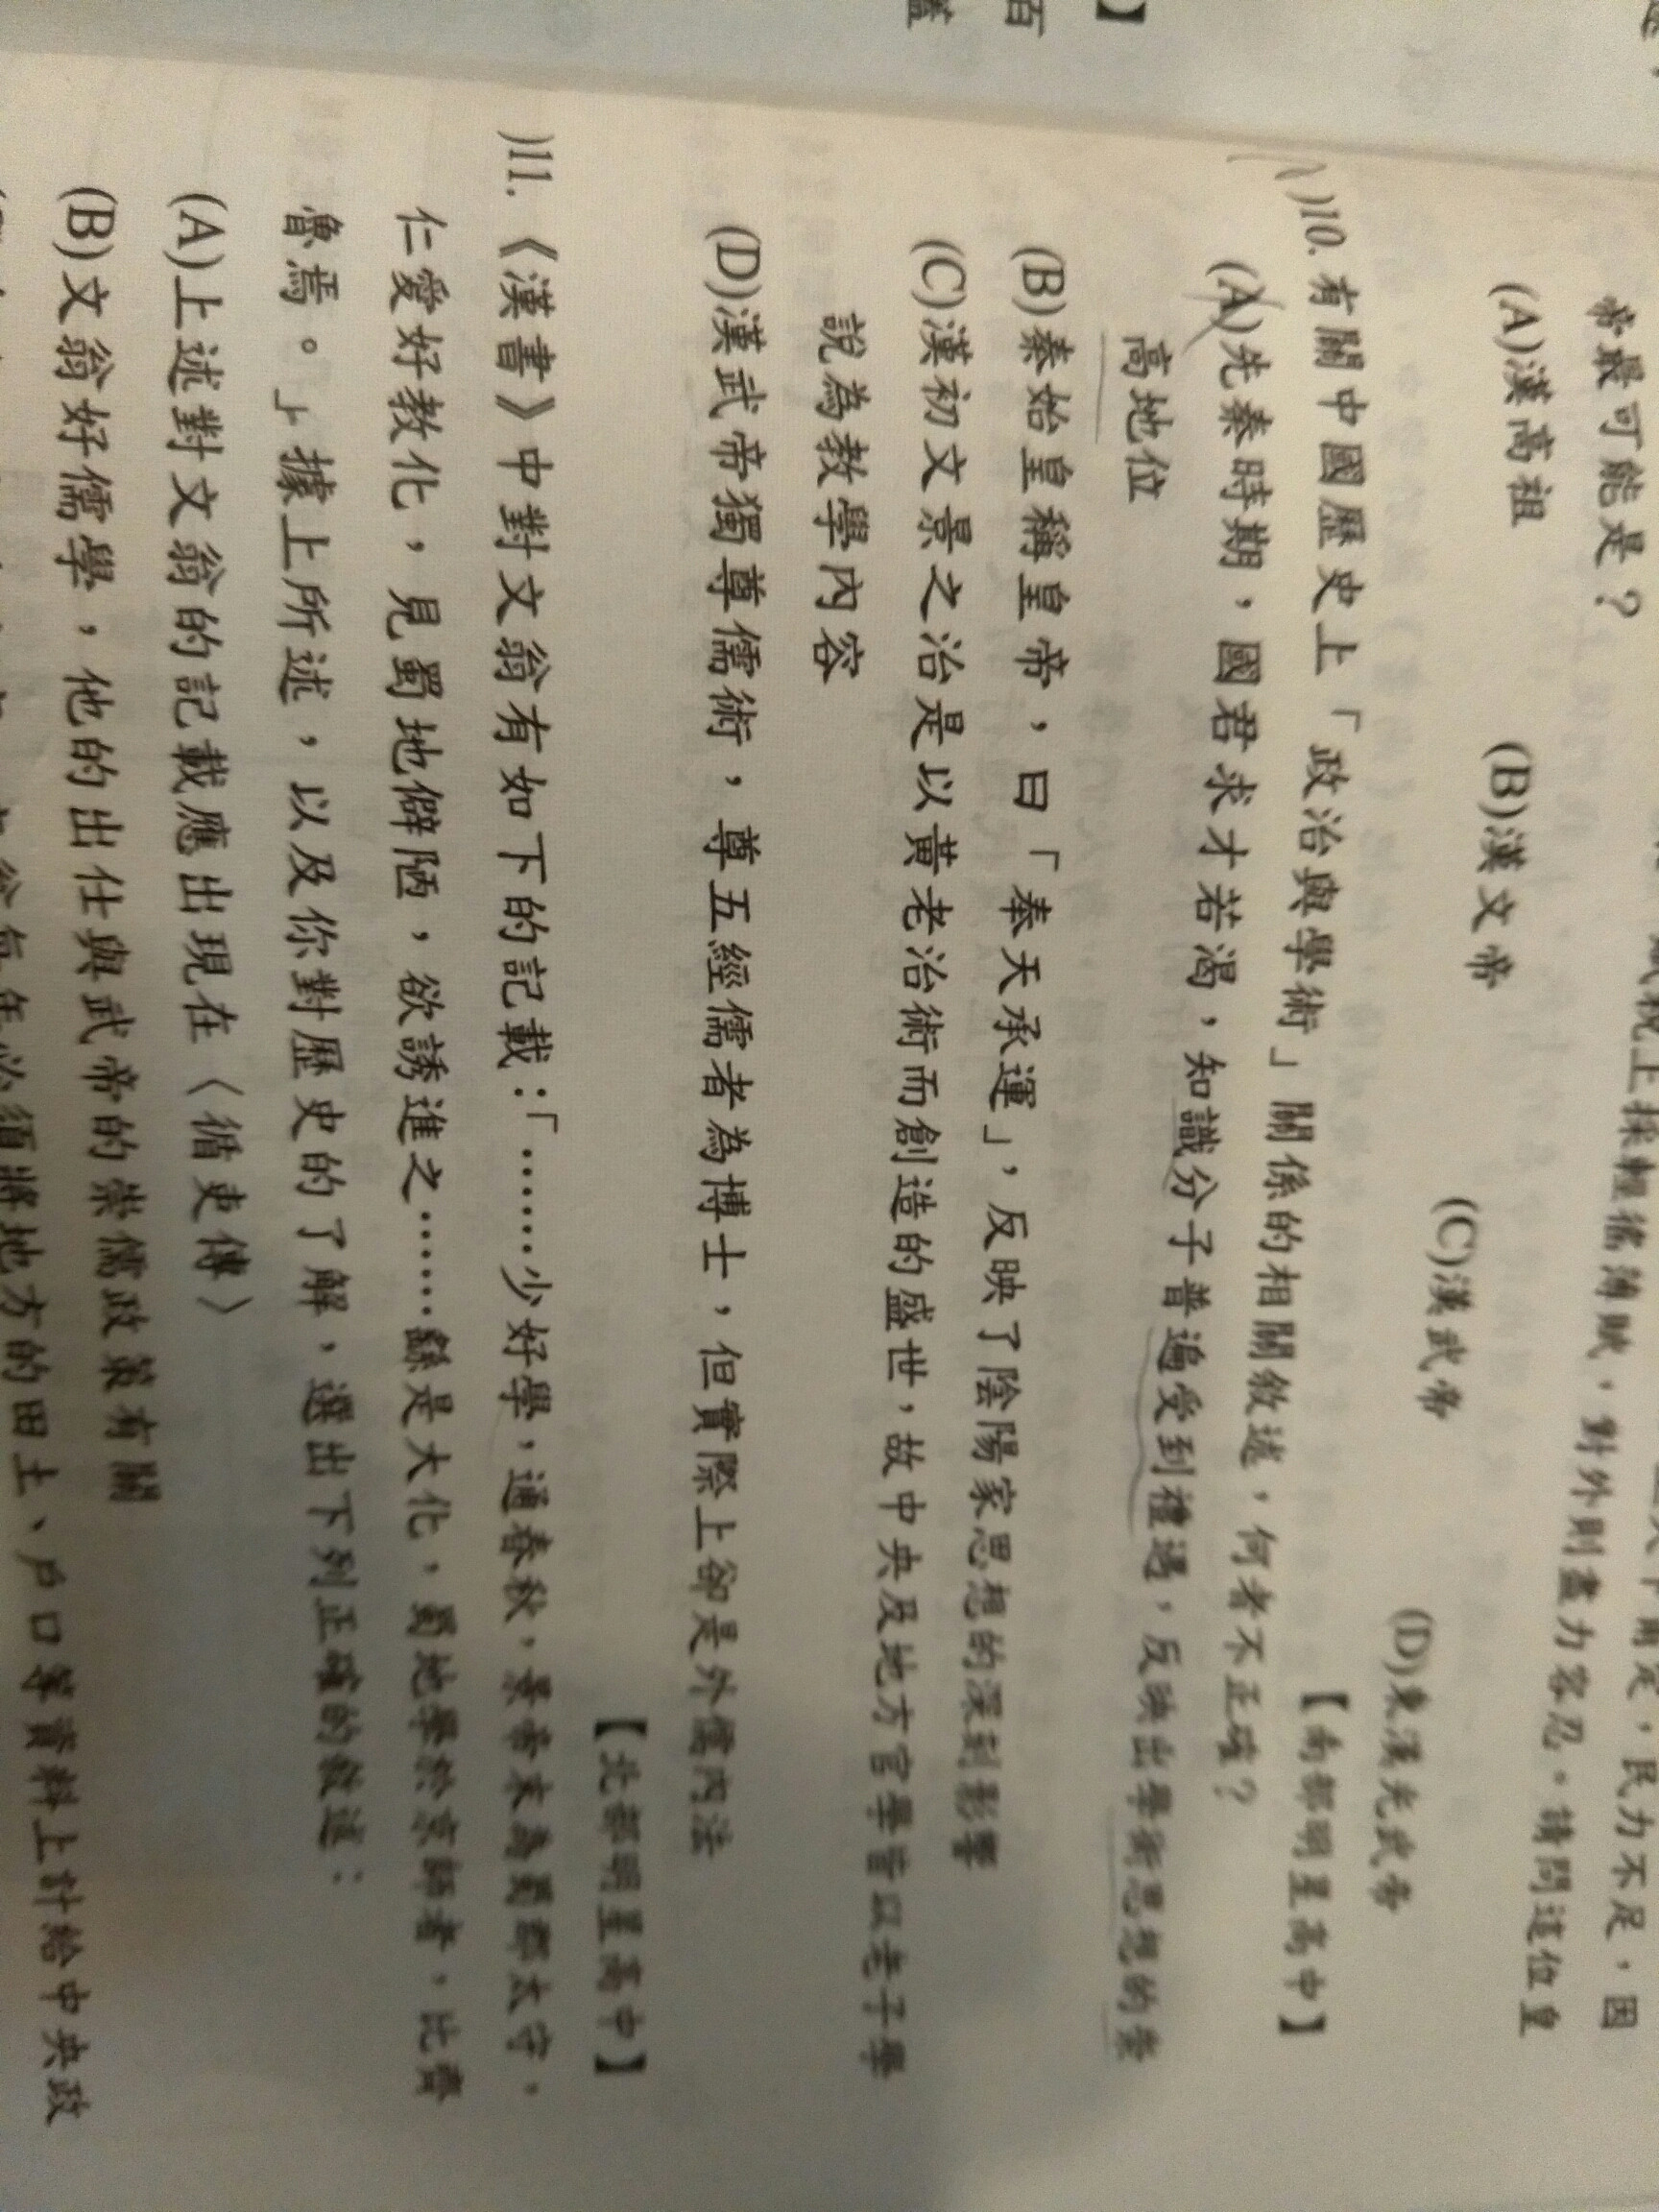 賦稅上採輕徭薄賦,對外則盡力容忍。請問這位皇
帝最可能是?
(A)漢高祖 (B)漢文帝 (C)漢武帝 (D)東漢光武帝
【南部明星高中】
( )10. 有關中國歷史上「政治與學術」關係的相關敘述,何者不正確?
(A)先秦時期,國君求才若渴,知識分子普遍受到禮遇,反映出學術思想的崇
高地位
(B)秦始皇稱皇帝,曰「奉天承運」,反映了陰陽家思想的深刻影響
(C)漢初文景之治是以黃老治術而創造的盛世,故中央及地方官學皆以老子學
說為教學內容
(D)漢武帝獨尊儒術,尊五經儒者為博士,但實際上卻是外儒內法
【北部明星高中】
)11. 《漢書》中對文翁有如下的記載:「……少好學,通春秋,景帝末為蜀郡太守,
仁愛好教化,見蜀地僻陋,欲誘進之……繇是大化,蜀地學於京師者,比齊
魯焉。」據上所述,以及你對歷史的了解,選出下列正確的敘述:
(A)上述對文翁的記載應出現在〈循吏傳〉
(B)文翁好儒學,他的出仕與武帝的崇儒政策有關
每年必須將地方的田土、戶口等資料上計給中央政